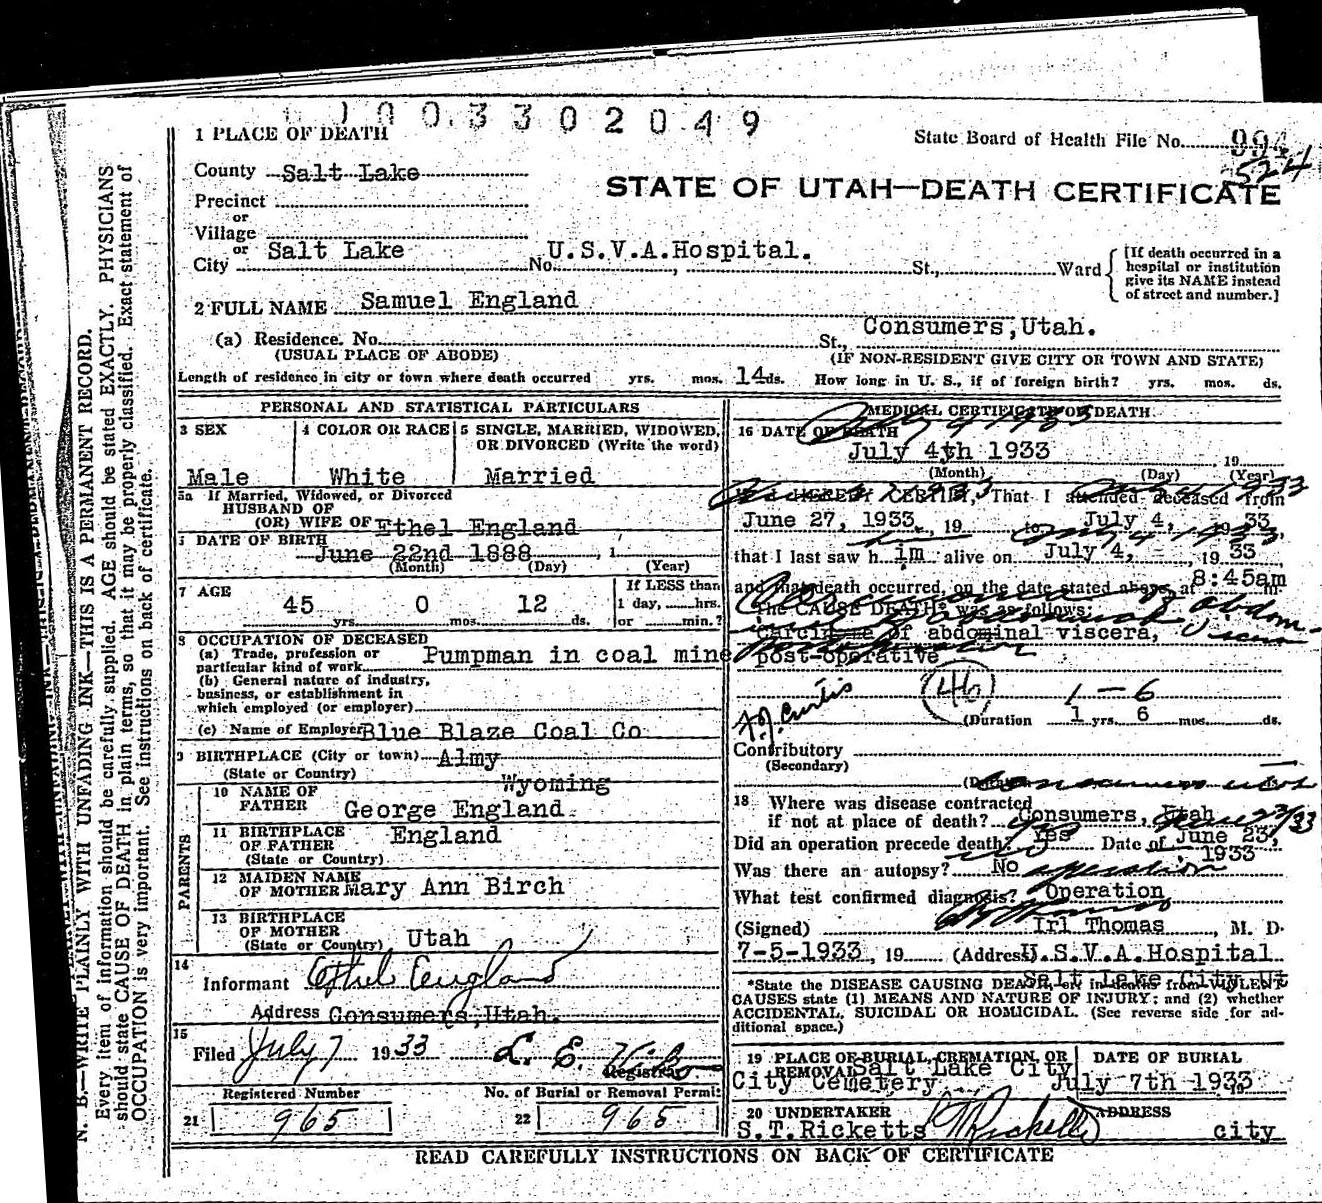 1003302049
1 PLACE OF DEATH
State Board of Health File No. 994
524
County Salt Lake
STATE OF UTAH—DEATH CERTIFICATE
Precinct
or
Village
or
City Salt Lake No. U.S.V.A.Hospital. St., Ward
[If death occurred in a
hospital or institution
give its NAME instead
of street and number.]
2 FULL NAME Samuel England
(a) Residence. No. St., Consumers,Utah.
(USUAL PLACE OF ABODE) (IF NON-RESIDENT GIVE CITY OR TOWN AND STATE)
Length of residence in city or town where death occurred yrs. mos. 14 ds. How long in U. S., if of foreign birth? yrs. mos. ds.
PERSONAL AND STATISTICAL PARTICULARS
3 SEX
Male
4 COLOR OR RACE
White
5 SINGLE, MARRIED, WIDOWED,
OR DIVORCED (Write the word)
Married
5a If Married, Widowed, or Divorced
HUSBAND OF
(OR) WIFE OF Ethel England
DATE OF BIRTH
June 22nd 1888, 1
(Month) (Day) (Year)
7 AGE
45 yrs. 0 mos. 12 ds.
If LESS than
1 day, hrs.
or min.?
8 OCCUPATION OF DECEASED
(a) Trade, profession or
particular kind of work Pumpman in coal mine
(b) General nature of industry,
business, or establishment in
which employed (or employer)
(c) Name of Employer Blue Blaze Coal Co
9 BIRTHPLACE (City or town) Almy
(State or Country) Wyoming
PARENTS
10 NAME OF
FATHER George England
11 BIRTHPLACE
OF FATHER England
(State or Country)
12 MAIDEN NAME
OF MOTHER Mary Ann Birch
13 BIRTHPLACE
OF MOTHER
(State or Country) Utah
14
Informant Ethel England
Address Consumers,Utah.
15
Filed July 7 1933 L. E.
Registrar
Registered Number
21 965
No. of Burial or Removal Permit
22 965
MEDICAL CERTIFICATE OF DEATH
July 4 1933
16 DATE OF DEATH
July 4th 1933, 19
(Month) (Day) (Year)
I HEREBY CERTIFY, That I attended deceased from
June 27, 1933, 19 to July 4, 1933
that I last saw him alive on July 4, 1933,
and that death occurred, on the date stated above, at 8:45am m.
The CAUSE DEATH* was as follows:
Carcinoma of abdominal viscera,
post-operative
46 1-6
A.J. Curtis
(Duration 1 yrs. 6 mos. ds.
Contributory
(Secondary)
(Duration
18 Where was disease contracted
if not at place of death? Consumers, Utah
Did an operation precede death? Yes Date of June 23,
1933
Was there an autopsy? No operation
What test confirmed diagnosis? Operation
(Signed) Iri Thomas, M. D.
7-5-1933, 19 (Address) U.S.V.A.Hospital
Salt Lake City Ut
*State the DISEASE CAUSING DEATH, or in deaths from VIOLENT
CAUSES state (1) MEANS AND NATURE OF INJURY; and (2) whether
ACCIDENTAL, SUICIDAL OR HOMICIDAL. (See reverse side for ad-
ditional space.)
19 PLACE OF BURIAL, CREMATION, OR
REMOVAL Salt Lake City
City Cemetery
DATE OF BURIAL
July 7th 1933 19
20 UNDERTAKER
S.T.Ricketts
ADDRESS
city
READ CAREFULLY INSTRUCTIONS ON BACK OF CERTIFICATE
N. B.—WRITE PLAINLY WITH UNFADING INK—THIS IS A PERMANENT RECORD.
Every item of information should be carefully supplied. AGE should be stated EXACTLY. PHYSICIANS
should state CAUSE OF DEATH in plain terms, so that it may be properly classified. Exact statement of
OCCUPATION is very important. See instructions on back of certificate.